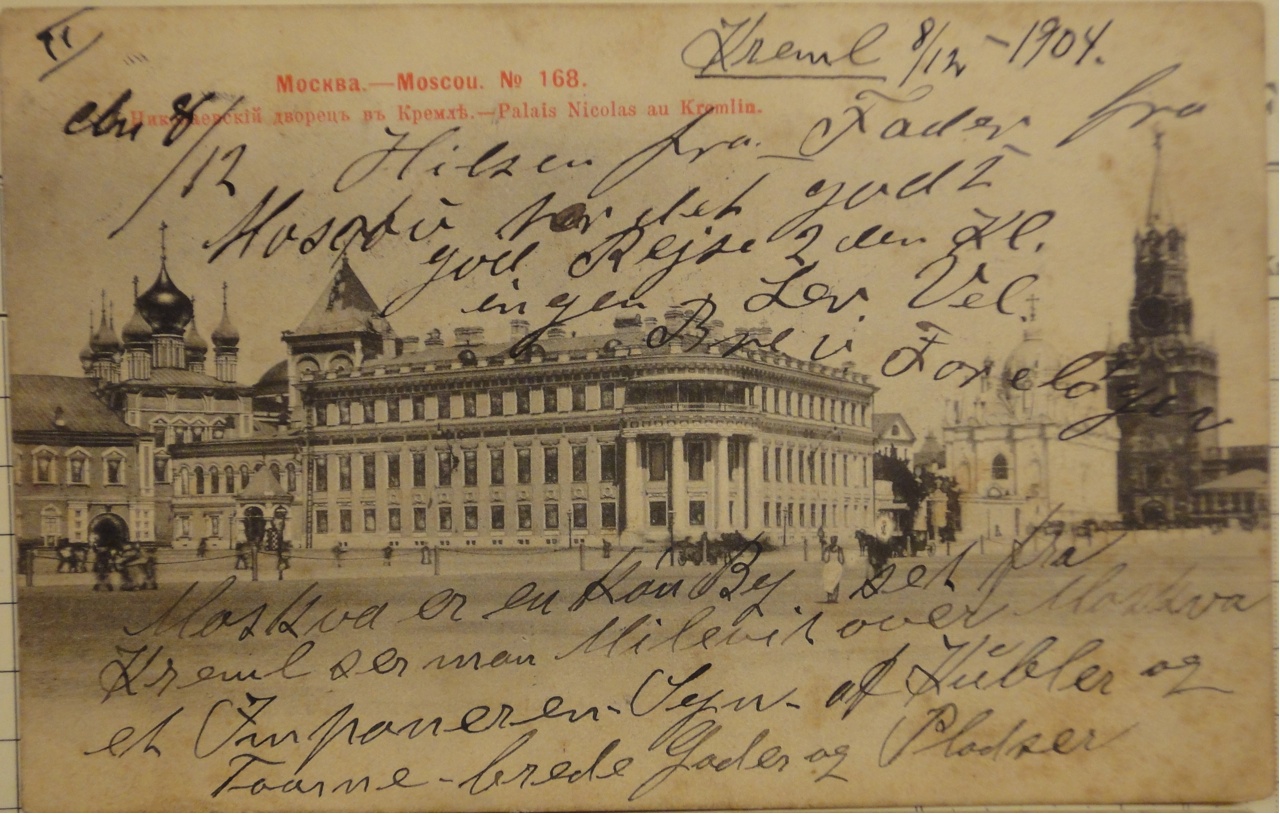 Kreml 8/12 - 1904.
Москва.—Moscou. № 168.
Николаевскій дворецъ въ Кремлѣ.—Palais Nicolas au Kremlin.
den 8/12
Hilsen fra Fader fra
Moscou har det godt
god Rejse 2 den Kl.
ingen Brev
Lev Vel.
i Foreløgen
Moskva er en Kon By set fra
Kreml ser man Milevit over Moskva
et Imponeren- Syn- af Kúbler og
Taarne - brede Gader og Pladser